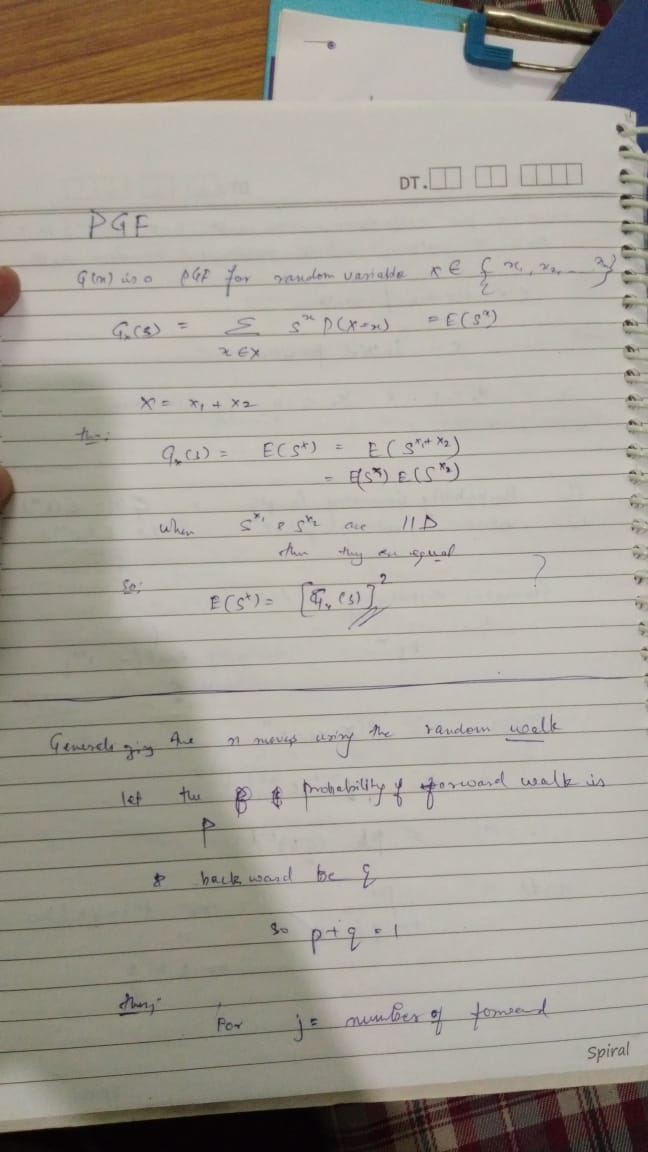 DT.
PGF
G(x) is a PGF for random variable x ∈ { x₁, x₂, ... xₙ}
Gₓ(s) = Σ sˣ P(X=x) = E(sˣ)
x ∈ X
X = x₁ + x₂
then:
Gₓ(s) = E(sˣ) = E(s^(x₁+x₂))
= E(s^x₁) E(s^x₂)
when s^x₁ & s^x₂ are IID
then they are equal
so: ?
E(sˣ) = [Gₓ(s)]²
the n moves using the random walk
let the probability of forward walk is
p
& backward be q
so p+q = 1
then;
For j = number of forward
Spiral